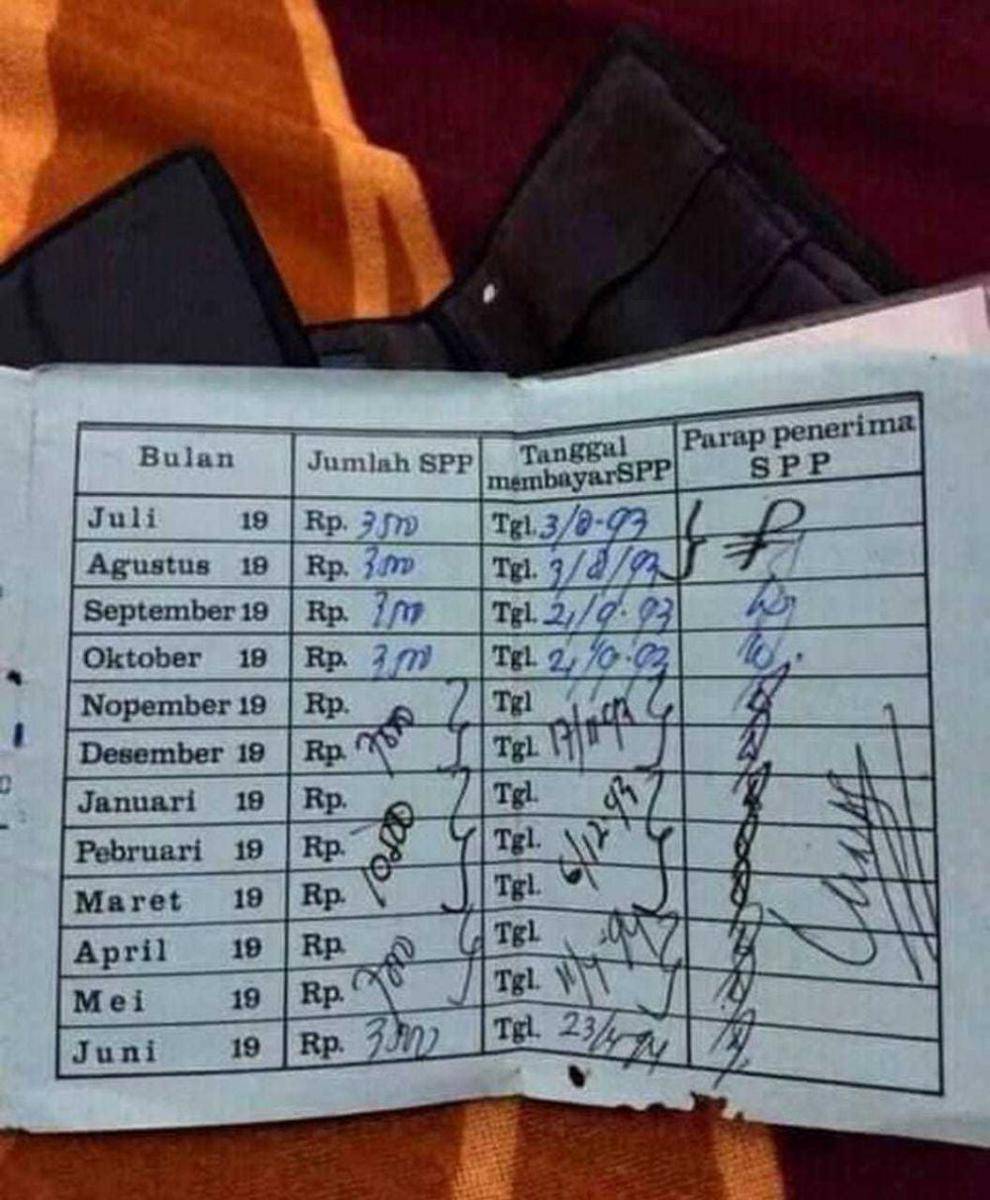 Bulan Jumlah SPP Tanggal membayarSPP Parap penerima SPP
Juli 19 Rp. 3500 Tgl. 3/8-93
Agustus 19 Rp. 3500 Tgl. 3/8/93
September 19 Rp. 3500 Tgl. 21/9-93
Oktober 19 Rp. 3500 Tgl.
Nopember 19 Rp. Tgl
Desember 19 Rp. 7000 Tgl. 17/11-93
Januari 19 Rp. Tgl.
Pebruari 19 Rp. 10500 Tgl. 6/12-93
Maret 19 Rp. Tgl.
April 19 Rp. Tgl.
Mei 19 Rp. 7000 Tgl. 11/4-94
Juni 19 Rp. 3500 Tgl.